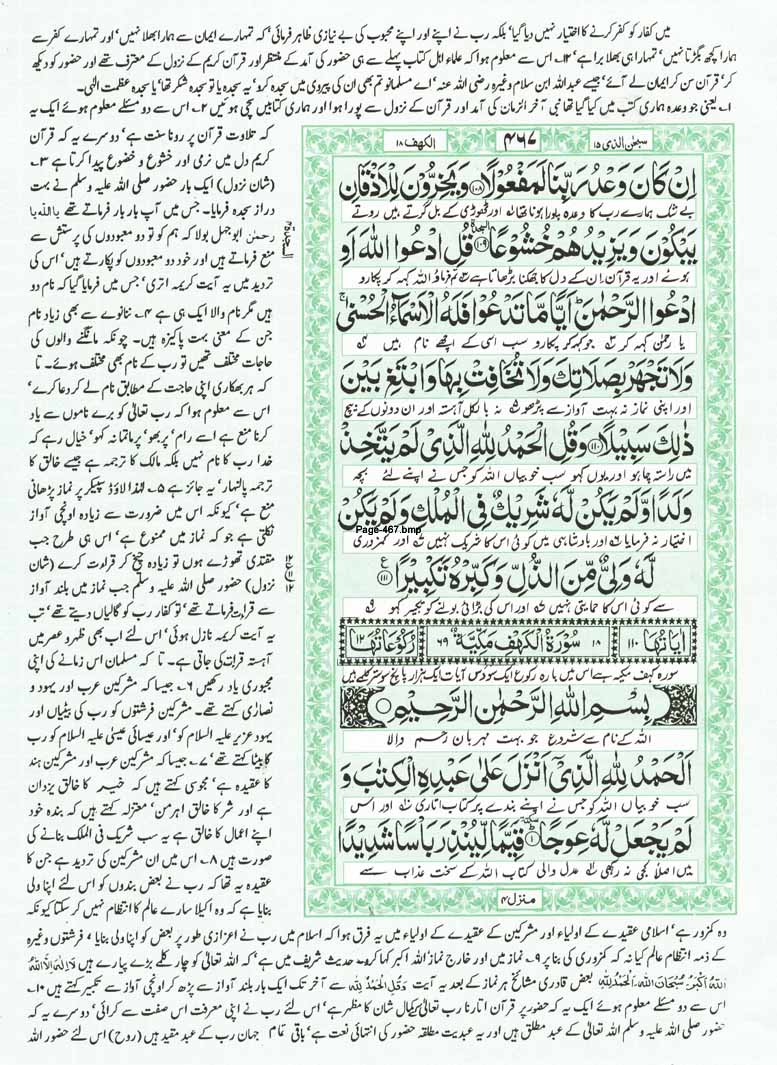 میں کفار کو کفر کرنے کا اختیار نہیں دیا گیا' بلکہ رب نے اپنے اور اپنے محبوب کی بے نیازی ظاہر فرمائی' کہ تمہارے ایمان سے ہمارا بھلا نہیں' اور تمہارے کفر سے
ہمارا کچھ بگڑتا نہیں' تمہارا ہی بھلا برا ہے' ۱۲۔ اس سے معلوم ہوا کہ علماء اہل کتاب پہلے سے ہی حضور کی آمد کے منتظر اور قرآن کریم کے نزول کے معترف تھے اور حضور کو دیکھ
کر' قرآن سن کر ایمان لے آئے' جیسے عبداللہ ابن سلام وغیرہ رضی اللہ عنہ' اے مسلمانو تم بھی ان کی پیروی میں سجدہ کرو' یہ سجدہ یا تو سجدہ شکر تھا' یا سجدہ عظمت الٰہی۔
۱۔ یعنی جو وعدہ ہماری کتب میں کیا گیا تھا نبی آخر الزمان کی آمد اور قرآن کے نزول سے پورا ہوا اور ہماری کتابیں سچی ہوئیں ۲۔ اس سے دو مسئلے معلوم ہوئے ایک یہ
سبحٰن الذی ۱۵
۴۶۷
الکھف ۱۸
اِنْ كَانَ وَعْدُ رَبِّنَا لَمَفْعُوْلًا ۱۰۸ وَيَخِرُّوْنَ لِلْاَذْقَانِ
بے شک ہمارے رب کا وعدہ پورا ہونا تھا اور ٹھوڑی کے بل گرتے ہیں روتے
يَبْكُوْنَ وَيَزِيْدُهُمْ خُشُوْعًا ۱۰۹ قُلِ ادْعُوا اللّٰهَ اَوِ
ہوئے اور یہ قرآن ان کے دل کا جھکنا بڑھاتا ہے تم فرماؤ اللہ کہہ کر پکارو
ادْعُوا الرَّحْمٰنَ اَيًّا مَّا تَدْعُوْا فَلَهُ الْاَسْمَآءُ الْحُسْنٰى
یا رحمٰن کہہ کر جو کہہ کر پکارو سب اسی کے اچھے نام ہیں
وَلَا تَجْهَرْ بِصَلَاتِكَ وَلَا تُخَافِتْ بِهَا وَابْتَغِ بَيْنَ
اور اپنی نماز نہ بہت آواز سے پڑھو نہ بالکل آہستہ اور ان دونوں کے بیچ
ذٰلِكَ سَبِيْلًا ۱۱۰ وَقُلِ الْحَمْدُ لِلّٰهِ الَّذِيْ لَمْ يَتَّخِذْ
میں راستہ چاہو اور یوں کہو سب خوبیاں اللہ کو جس نے اپنے لئے بچہ
وَلَدًا وَّلَمْ يَكُنْ لَّهٗ شَرِيْكٌ فِي الْمُلْكِ وَلَمْ يَكُنْ
Page-467.bmp
اختیار نہ فرمایا اور بادشاہی میں کوئی اس کا شریک نہیں اور کمزوری
لَّهٗ وَلِيٌّ مِّنَ الذُّلِّ وَكَبِّرْهُ تَكْبِيْرًا ۱۱۱
سے کوئی اس کا حمایتی نہیں اور اس کی بڑائی بولنے کو تکبیر کہو
اٰيَاتُهَا ۱۱۰ ۱۸ سُوْرَةُ الْكَهْفِ مَكِّيَّةٌ ۶۹ رُكُوْعَاتُهَا ۱۲
سورہ کہف مکیہ ہے اس میں بارہ رکوع ایک سو دس آیات ایک ہزار پانچ سو ستتر کلمے ہیں
بِسْمِ اللّٰهِ الرَّحْمٰنِ الرَّحِيْمِ
اللہ کے نام سے شروع جو بہت مہربان رحم والا
اَلْحَمْدُ لِلّٰهِ الَّذِيْٓ اَنْزَلَ عَلٰى عَبْدِهِ الْكِتٰبَ وَ
سب خوبیاں اللہ کو جس نے اپنے بندے پر کتاب اتاری اور اس
لَمْ يَجْعَلْ لَّهٗ عِوَجًا ۱ قَيِّمًا لِّيُنْذِرَ بَاْسًا شَدِيْدًا
میں اصلاً کجی نہ رکھی عدل والی کتاب اللہ کے سخت عذاب سے
منزل ۴
السجدۃ
کہ تلاوت قرآن پر رونا سنت ہے' دوسرے یہ کہ قرآن
کریم دل میں نرمی اور خشوع و خضوع پیدا کرتا ہے ۳۔
(شان نزول) ایک بار حضور صلی اللہ علیہ وسلم نے بہت
دراز سجدہ فرمایا۔ جس میں آپ بار بار فرماتے تھے یا اللہ یا
رحمٰن ابوجہل بولا کہ ہم کو تو دو معبودوں کی پرستش سے
منع فرماتے ہیں اور خود دو معبودوں کو پکارتے ہیں' اس کی
تردید میں یہ آیت کریمہ اتری' جس میں فرمایا گیا کہ نام دو
ہیں مگر نام والا ایک ہی ہے ۴۔ ننانوے سے بھی زیاد نام
جن کے معنی بہت پاکیزہ ہیں۔ چونکہ مانگنے والوں کی
حاجات مختلف تھیں تو رب کے نام بھی مختلف ہوئے۔ تا
کہ ہر بھکاری اپنی حاجت کے مطابق نام لے کر دعا کرے'
اس سے معلوم ہوا کہ رب تعالیٰ کو برے ناموں سے یاد
کرنا منع ہے اسے رام' پربھو' پرماتما نہ کہو' خیال رہے کہ
خدا رب کا نام نہیں بلکہ مالک کا ترجمہ ہے جیسے خالق کا
ترجمہ پالنہار' یہ جائز ہے ۵۔ لہٰذا لاؤڈ سپیکر پر نماز پڑھانی
منع ہے' کیونکہ اس میں ضرورت سے زیادہ اونچی آواز
نکلتی ہے جو کہ نماز میں ممنوع ہے' اس ہی طرح جب
مقتدی تھوڑے ہوں تو زیادہ چیخ کر قرات کرے (شان
نزول) حضور صلی اللہ علیہ وسلم جب نماز میں بلند آواز
سے قرات فرماتے تھے' تو کفار رب کو گالیاں دیتے تھے' تب
یہ آیت کریمہ نازل ہوئی' اس لئے اب بھی ظہر و عصر میں
آہستہ قرات کی جاتی ہے۔ تا کہ مسلمان اس زمانے کی اپنی
مجبوری یاد رکھیں ۶۔ جیسا کہ مشرکین عرب اور یہود و
نصاریٰ کہتے تھے۔ مشرکین فرشتوں کو رب کی بیٹیاں اور
یہود عزیر علیہ السلام کو' اور عیسائی عیسیٰ علیہ السلام کو رب
کا بیٹا کہتے تھے' ۷۔ جیسا کہ مشرکین عرب اور مشرکین ہند
کا عقیدہ ہے' مجوسی کہتے ہیں کہ خیر کا خالق یزدان
ہے اور شر کا خالق اہرمن' معتزلہ کہتے ہیں کہ بندہ خود
اپنے اعمال کا خالق ہے یہ سب شریک فی الملک بنانے کی
صورت ہیں ۸۔ اس میں ان مشرکین کی تردید ہے جن کا
عقیدہ یہ تھا کہ رب نے بعض بندوں کو اس لئے اپنا ولی
بنایا ہے کہ وہ اکیلا سارے عالم کا انتظام نہیں کر سکتا کیونکہ
وہ کمزور ہے' اسلامی عقیدے کے اولیاء اور مشرکین کے عقیدے کے اولیاء میں یہ فرق ہوا کہ اسلام میں رب نے اعزازی طور پر بعض کو اپنا ولی بنایا' فرشتوں وغیرہ
کے ذمہ انتظام عالم کیا نہ کہ کمزوری کی بنا پر ۹۔ نماز میں اور خارج نماز اللہ اکبر کہا کرو۔ حدیث شریف میں ہے' کہ اللہ تعالیٰ کو چار کلمے بڑے پیارے ہیں لا الہ الا اللہ
اللہ اکبر سبحان اللہ الحمد للہ بعض قادری مشائخ ہر نماز کے بعد یہ آیت وقل الحمد للہ سے آخر تک ایک بار بلند آواز سے پڑھ کر اونچی آواز سے تکبیر کہتے ہیں ۱۰۔
اس سے دو مسئلے معلوم ہوئے ایک یہ کہ حضور پر قرآن اتارنا رب تعالیٰ کے کمال شان کا مظہر ہے' اس لئے رب نے اپنی معرفت اس صفت سے کرائی' دوسرے یہ کہ
حضور صلی اللہ علیہ وسلم اللہ تعالیٰ کے عبد مطلق ہیں اور یہ عبدیت مطلقہ حضور کی انتہائی نعت ہے' باقی تمام جہان رب کے عبد مقید ہیں (روح) اس لئے حضور اللہ